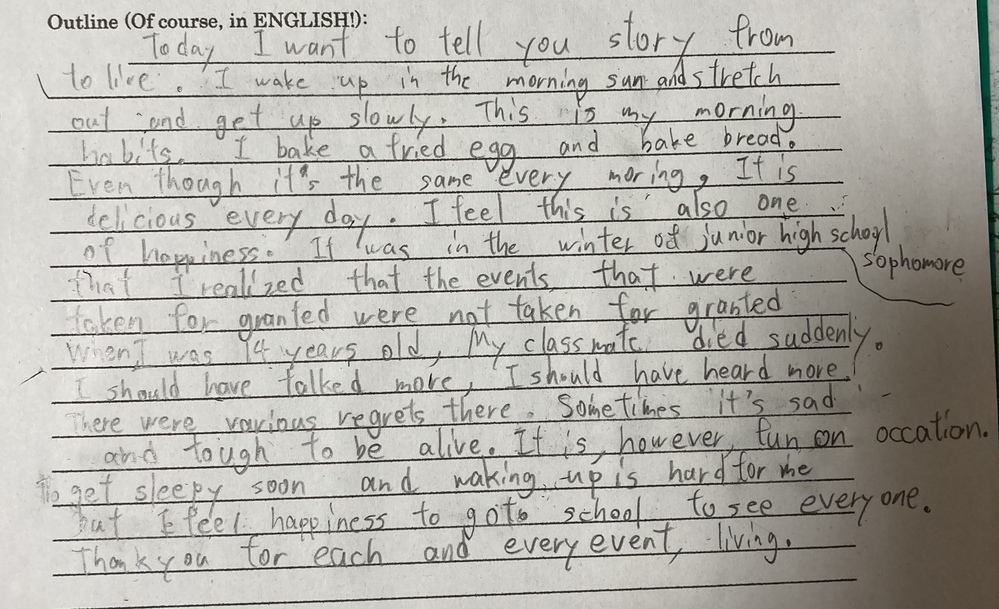 Outline (Of course, in ENGLISH!):
Today I want to tell you story from
to live. I wake up in the morning sun and stretch
out and get up slowly. This is my morning
habits. I bake a fried egg and bake bread.
Even though it's the same every moring, It is
delicious every day. I feel this is also one
of happiness. It was in the winter of junior high school
sophomore
that I realized that the events that were
taken for granted were not taken for granted
When I was 14 years old, My classmate died suddenly.
I should have talked more, I should have heard more!
There were various regrets there. Sometimes it's sad
and tough to be alive. It is, however, fun on occation.
To get sleepy soon and waking up is hard for me
but I feel happiness to goto school to see everyone.
Thank you for each and every event, living.